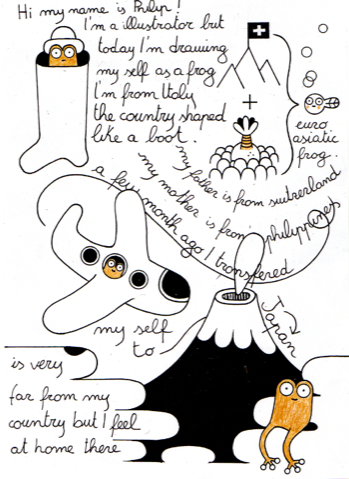 Hi my name is Philip!
I'm a illustrator but
today I'm drawing
my self as a frog
I'm from Italy
the country shaped
like a boot.
euro
asiatic
frog.
my father is from switzerland
my mother is from philippines
a few month ago I transfered
my self
to
Japan
is very
far from my
country but I feel
at home there